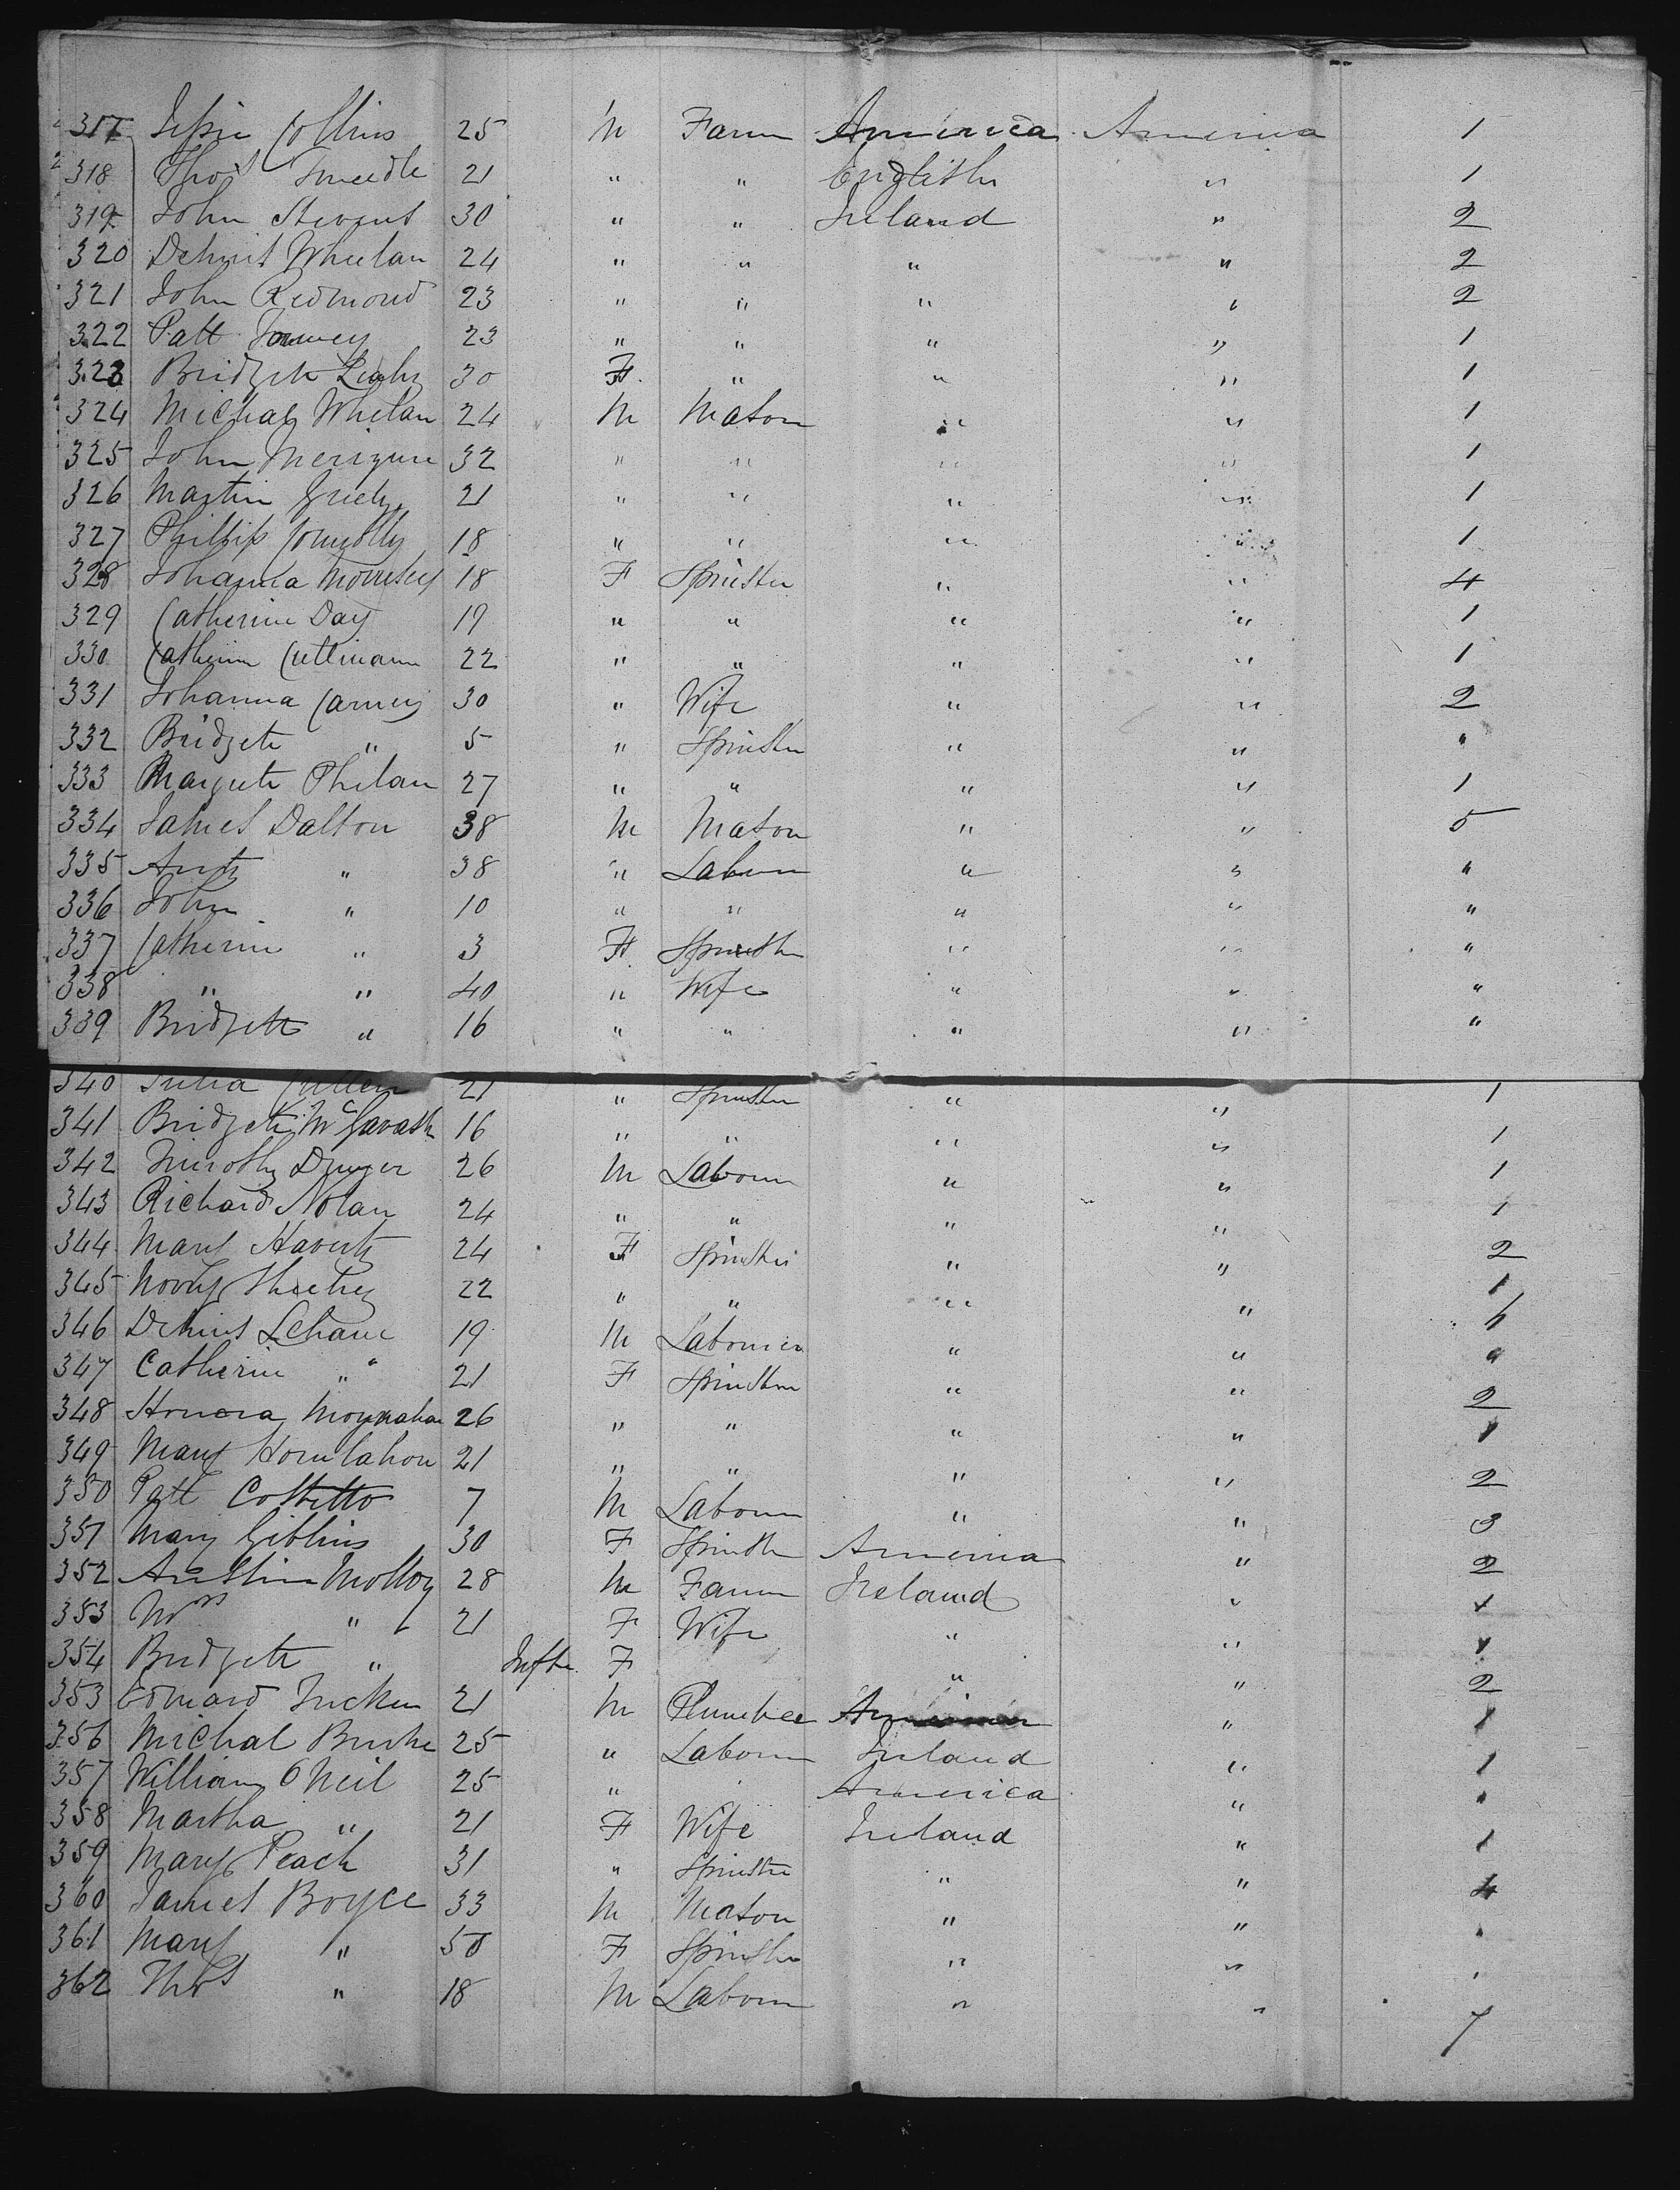 317 Jessie Collins 25 M Farm America America 1
318 Thos Tweedle 21 " " English " 1
319 John Stevens 30 " " Ireland " 2
320 Dennis Wheelan 24 " " " " 2
321 John Redmond 23 " " " " 2
322 Patt 23 " " " " 1
323 Bridgett Leahy 30 F " " " 1
324 Michal Whelan 24 M Mason " " 1
325 John 32 " " " " 1
326 Martin 21 " " " " 1
327 Phillip Connolly 18 " " " " 1
328 Johanna Morrisey 18 F Spinster " " 4
329 Catherine Day 19 " " " " 1
330 Catherin 22 " " " " 1
331 Johanna Carney 30 " Wife " " 2
332 Bridgett " 5 " Spinster " " "
333 Margrete Phelan 27 " " " " 1
334 James Dalton 38 M Mason " " 5
335 " 38 " Labour " " "
336 John " 10 " " " " "
337 Catherin " 3 F Spinster " " "
338 " " 40 " Wife " " "
339 Bridgett " 16 " " " " "
340 Julia Cullen 21 " Spinster " " 1
341 Bridgett 16 " " " " 1
342 Timothy Dwyer 26 M Labour " " 1
343 Richard Nolan 24 " " " " 1
344 Mary Haverty 24 F Spinster " " 2
345 Sheehey 22 " " " " 1
346 Dennis Lehane 19 M Labourer " "
347 Catherin " 21 F Spinster " " "
348 Honora Moynahan 26 " " " " 2
349 Mary 21 " " " " 1
350 Patt Costello 7 M Labour " " 2
351 Mary Giblins 30 F Spinster America " 3
352 Austin Molloy 28 M Farm Ireland " 2
353 Mrs " 21 F Wife " "
354 Bridgett " F " "
353 Edward 21 M Plumber " 2
356 Michal Burke 25 " Labour Ireland " 1
357 William O Neil 25 " America " 1
358 Martha " 21 F Wife Ireland " "
359 Mary Peach 31 " Spinster " " 1
360 James Boyce 33 M Mason " " 4
361 Mary " 50 F Spinster " " "
362 Thos " 18 M Labour " " "
7